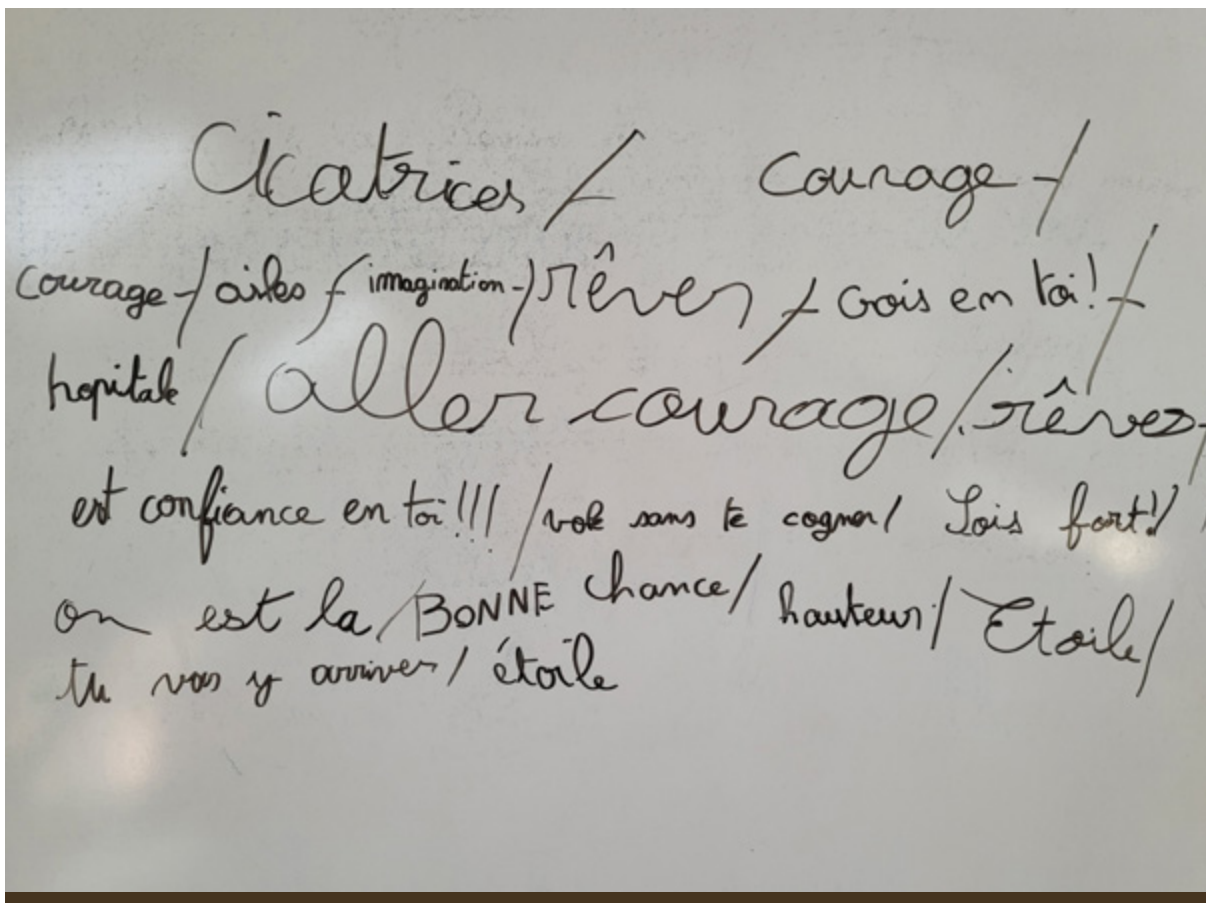 Cicatrices / courage -/
courage -/ ailes / imagination -/ rêver / crois en toi! /
hopitale / aller courage / rêves /
est confiance en toi!!! / vole sans te cogner / Sois fort! /
on est la / BONNE chance / hauteur / Etoile /
tu vas y arriver / étoile